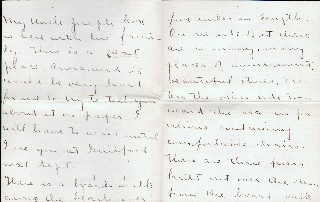 My Uncle Joseph
is here with his fami-
ly. This is a great
place, Anna, and it
would be very hard
for me to try to tell you
about it on paper. I
will have to wait until
I see you at
next Sept.
There is a board walk
along the beach over
five miles in length.
On one side of it there
are a many, many
places of amusement,
beautiful stores, etc.
On the other side to-
ward the sea are pa-
vilions containing
comfortable chairs.
There are three piers
built out over the ocean
from this board walk